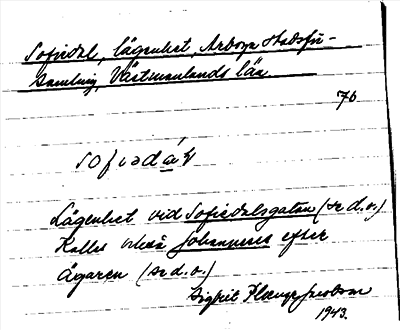 Sofiedal, lägenhet, Arboga stadsför-
samling, Västmanlands län.
76
Lägenhet vid Sofiedalsgatan (se d.o.)
Kallas också Johannes efter
ägaren (se d.o.)
Sigfrit
1943.